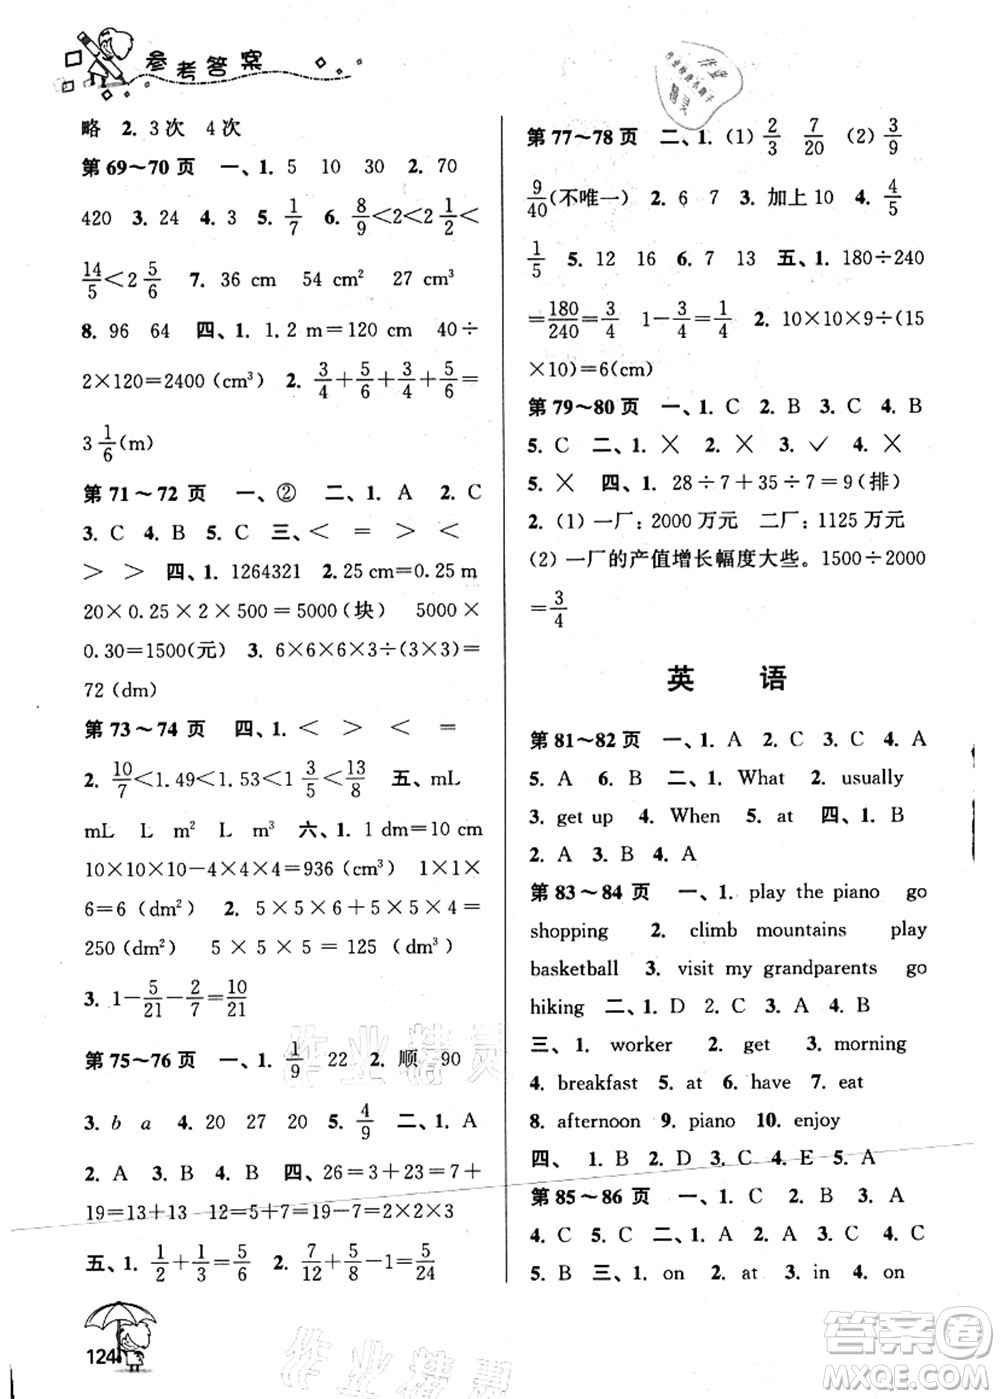 参考答案
略 2. 3次 4次
第69～70页 一、1. 5 10 30 2. 70
420 3. 24 4. 3 5. 1/7 6. 8/9＜2＜2 1/2＜
14/5＜2 5/6 7. 36 cm 54 cm² 27 cm³
8. 96 64 四、1. 1.2 m＝120 cm 40÷
2×120＝2400（cm³） 2. 3/4＋5/6＋3/4＋5/6＝
3 1/6(m)
第71～72页 一、② 二、1. A 2. C
3. C 4. B 5. C 三、＜ ＝ ＞ ＜
＞ ＞ 四、1. 1264321 2. 25 cm＝0.25 m
20×0.25×2×500＝5000（块） 5000×
0.30＝1500(元) 3. 6×6×6×3÷(3×3)＝
72（dm）
第73～74页 四、1. ＜ ＞ ＜ ＝
2. 10/7＜1.49＜1.53＜1 3/5＜13/8 五、mL
mL L m² L m³ 六、1. 1 dm＝10 cm
10×10×10－4×4×4＝936（cm³） 1×1×
6＝6（dm²） 2. 5×5×6＋5×5×4＝
250（dm²） 5×5×5＝125（dm³）
3. 1－5/21－2/7＝10/21
第75～76页 一、1. 1/9 22 2. 顺 90
3. b a 4. 20 27 20 5. 4/9 二、1. A
2. A 3. B 4. B 四、26＝3＋23＝7＋
19＝13＋13 12＝5＋7＝19－7＝2×2×3
五、1. 1/2＋1/3＝5/6 2. 7/12＋5/8－1＝5/24
124
第77～78页 二、1.（1）2/3 7/20（2）3/9
9/40(不唯一) 2. 6 7 3. 加上10 4. 4/5
1/5 5. 12 16 6. 7 13 五、1. 180÷240
＝180/240＝3/4 1－3/4＝1/4 2. 10×10×9÷(15
×10)＝6(cm)
第79～80页 一、1. C 2. B 3. C 4. B
5. C 二、1. × 2. × 3. ✓ 4. ×
5. × 四、1. 28÷7＋35÷7＝9(排)
2.（1）一厂：2000万元 二厂：1125万元
（2）一厂的产值增长幅度大些。1500÷2000
＝3/4
英 语
第81～82页 一、1. A 2. C 3. C 4. A
5. A 6. B 二、1. What 2. usually
3. get up 4. When 5. at 四、1. B
2. A 3. B 4. A
第83～84页 一、1. play the piano go
shopping 2. climb mountains play
basketball 3. visit my grandparents go
hiking 二、1. D 2. C 3. A 4. B
三、1. worker 2. get 3. morning
4. breakfast 5. at 6. have 7. eat
8. afternoon 9. piano 10. enjoy
四、1. B 2. D 3. C 4. E 5. A
第85～86页 一、1. C 2. B 3. A
4. C 5. C 二、1. B 2. A 3. A 4. C
5. B 三、1. on 2. at 3. in 4. on
作业精灵
作业精灵
答案卷
MXQE.COM